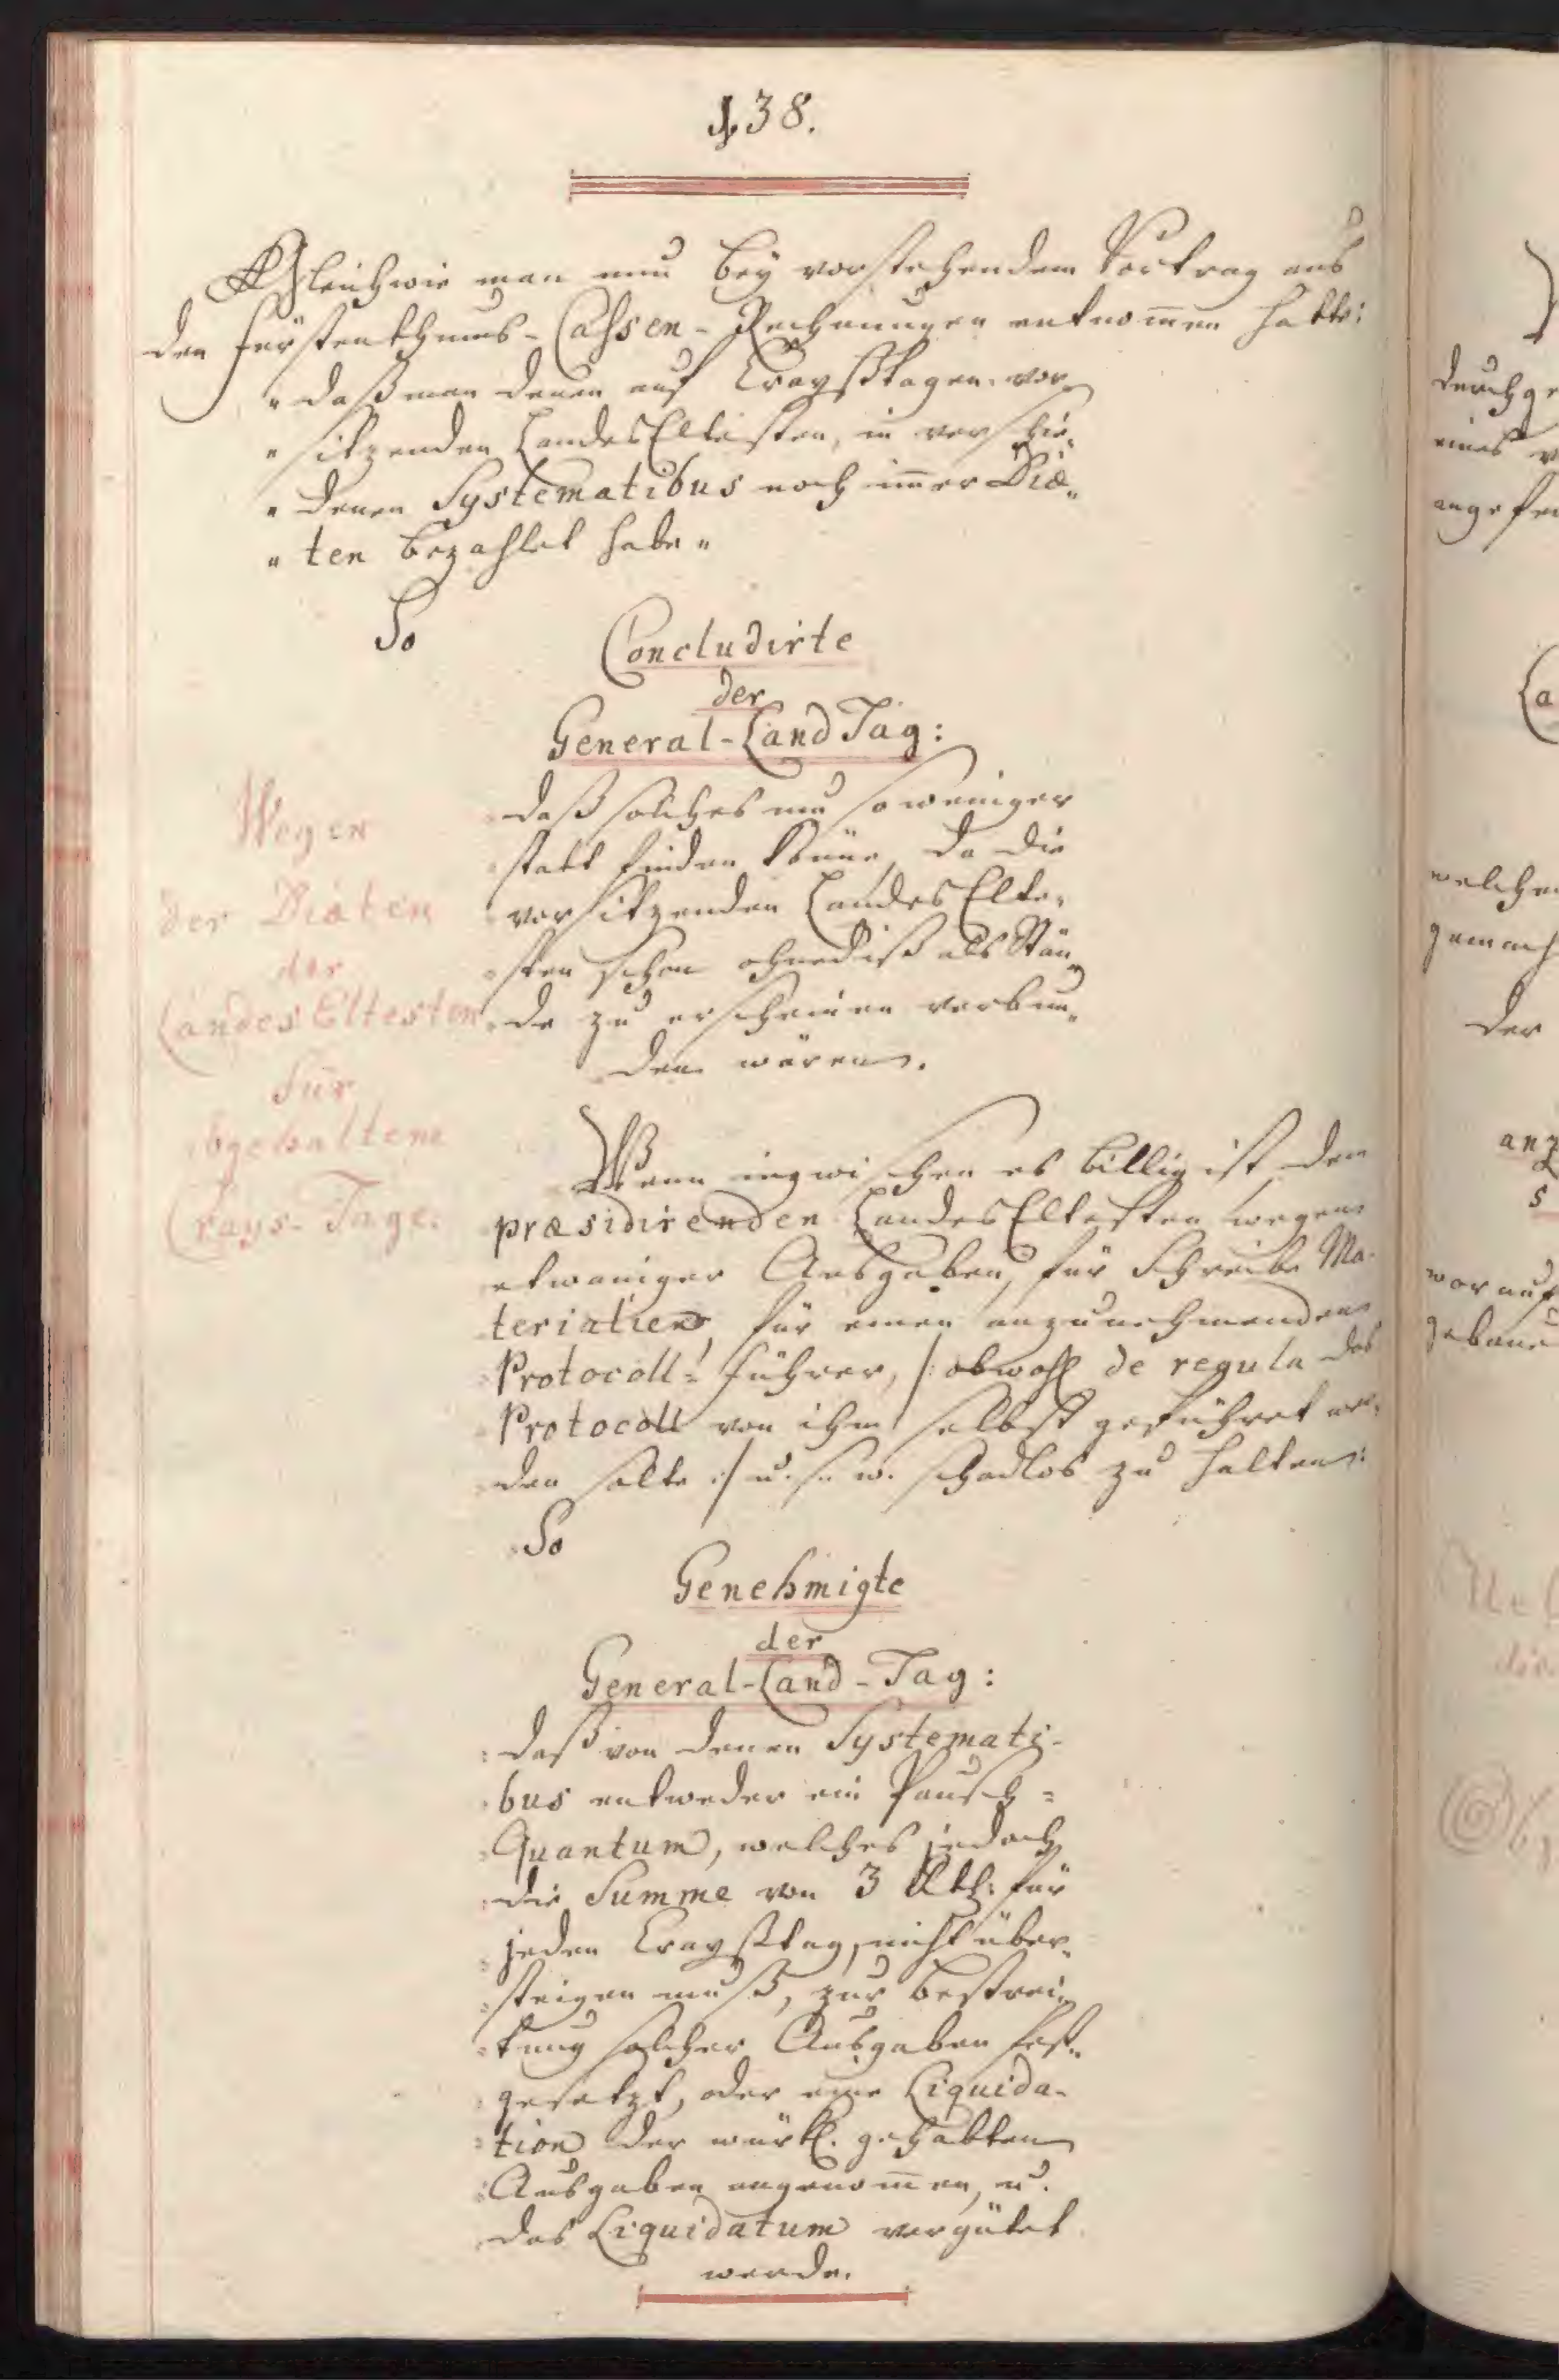 § 38.
Gleichwie man nun bey vorstehendem Vortrag aus
den Fürstenthums-Cassen-Rechnungen entnom̄en hatte:
„ daß man denen auf Craysstagen vor„
„ sitzenden LandesEltesten, in verschie„
„ denen Systematibus noch im̄er Diæ„
„ ten bezahlet habe „
So
Concludirte
der
General-Land Tag:
daß solches um so weniger
statt finden könne, da die
vorsitzenden Landes Elte„
sten schon ohnediß als Stän„
de zu erscheinen verbun„
den wären.
Wegen
der Diæten
der
Landes Eltesten
für
abgehaltene
Crays-Tage.
Wenn inzwischen es billig ist den
præsidirenden LandesEltesten wegen
etwaniger Ausgaben, für Schreibe Ma-
terialien, für einen anzunehmenden
Protocoll-Führer, /: obwohl de regula das
Protocoll von ihm selbst geführet wer„
den solte :/ u. s. w. schadlos zu halten:
So
Genehmigte
der
General-Land-Tag:
daß von denen Systemati-
bus entweder ein Pausch=
Quantum, welches jedoch
die Summe von 3 Rthl: für
jeden Craysstag, nicht über„
steigen muß, zur Bestrei„
tung solcher Ausgaben fest„
gesetzt, oder eine Liquida-
tion der würkl. gehabten
Ausgaben angenom̄en, u.
das Liquidatum vergütet
werde.